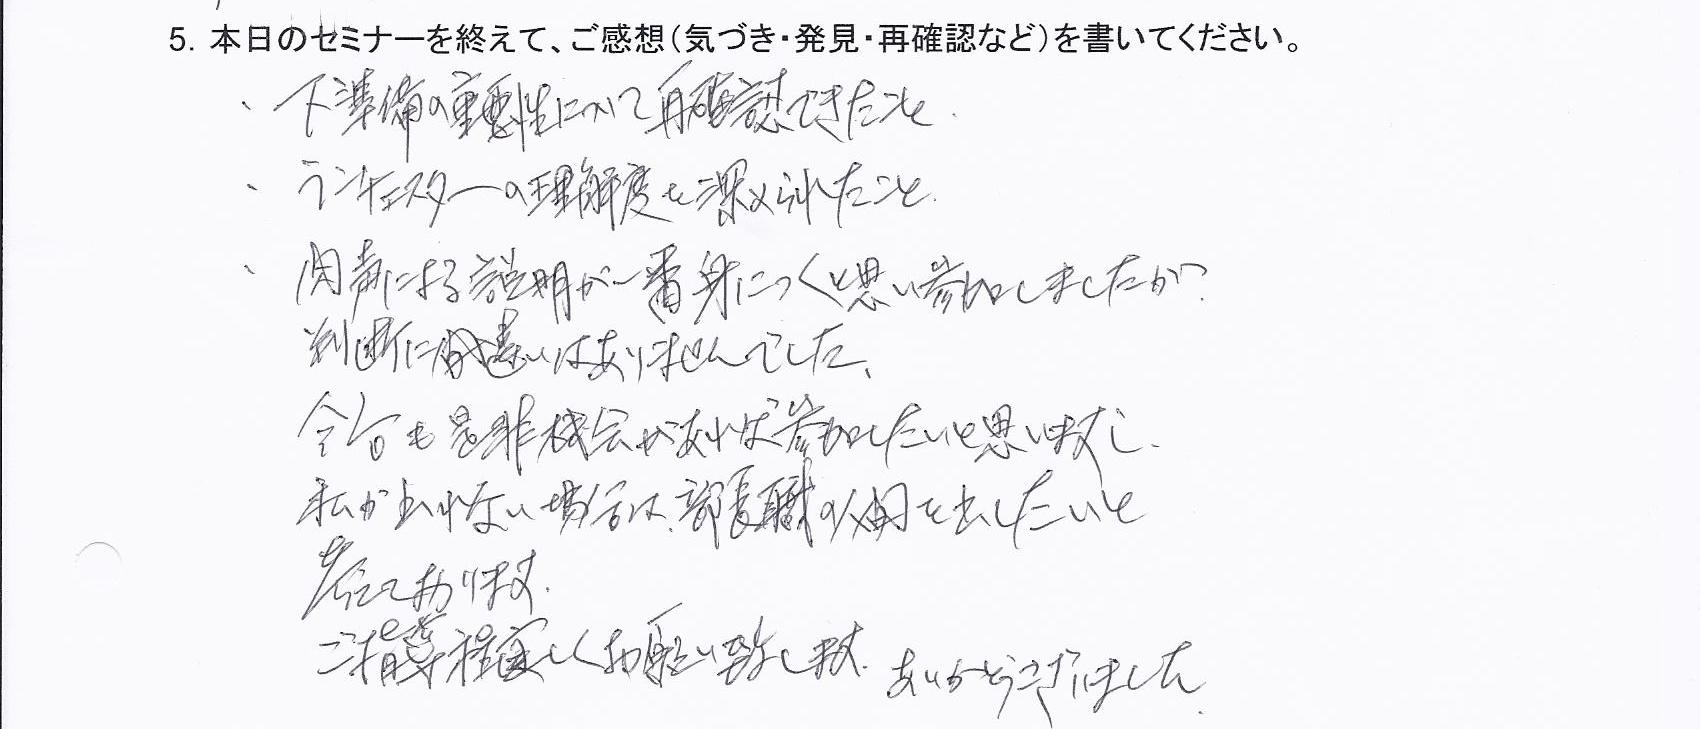 5. 本日のセミナーを終えて、ご感想（気づき・発見・再確認など）を書いてください。
、下準備の重要性について再確認できたこと.
、ランチェスターの理解度を深められたこと.
、肉声による説明が一番身につくと思い参加しましたが、
判断に間違いはありませんでした、
今后も是非機会があれば参加したいと思いますし、
私が出れない場合は、部長職の人間を出したいと
考えております.
ご指導程宜しくお願い致します. ありがとうございました.